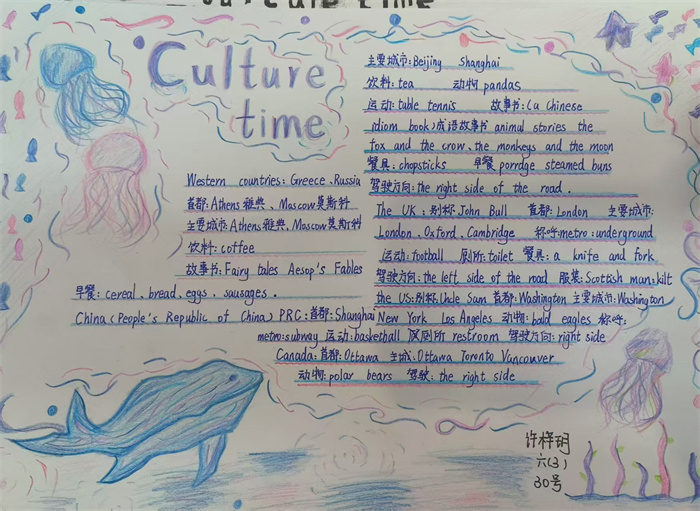 Culture time
Culture
time
Western countries: Greece、Russia
首都:Athens 雅典、Moscow莫斯科
主要城市:Athens雅典、Moscow莫斯科
饮料:coffee
故事书:Fairy tales Aesop's Fables
早餐: cereal、bread、eggs、sausages.
China(People's Republic of China) PRC:首都:Shanghai
主要城市:Beijing Shanghai
饮料:tea 动物 pandas
运动:table tennis 故事书:(a Chinese
idiom book)成语故事书 animal stories the
fox and the crow、the monkeys and the moon
餐具:chopsticks 早餐 porrdge steamed buns
驾驶方向:the right side of the road.
The UK:别称 John Bull 首都:London 主要城市:
London、Oxford、Cambridge 称呼:metro:underground
运动:football 厕所:toilet 餐具:a knife and fork
驾驶方向:the left side of the road 服装:Scottish man:kilt
the US:别称 Uncle Sam 首都:Washington 主要城市:Washington
New York Los Angeles 动物:bald eagles 称呼:
metro:subway 运动:basketball 厕所 restroom 驾驶方向:right side
Canada:首都:Ottawa 主城:Ottawa Toronto Vancouver
动物:polar bears 驾驶:the right side
许梓玥
六(3)
30号